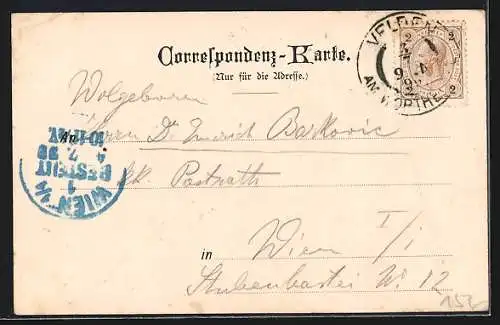 Correspondenz-Karte.
(Nur für die Adresse.)
VELDEN
AM WÖRTHE
2 2
2 2
Wolgeboren
An Herrn Dr Emerich Barkovic
kk. Postrath
in Wien I/i
Stubenbastei No 12
WIEN 1/1
BESTELLT
4 7. 98
10-11½V.
1
156